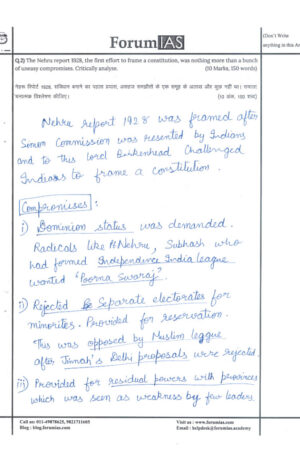 Forum IAS
(Don't Write
anything in this Ar
Q.2) The Nehru report 1928, the first effort to frame a constitution, was nothing more than a bunch
of uneasy compromises. Critically analyse. (10 Marks, 150 words)
नेहरू रिपोर्ट 1928, संविधान बनाने का पहला प्रयास, असहज समझौतों के एक समूह के अलावा और कुछ नहीं था।
(10 अंक, 150 शब्द)
Nehru report 1928 was framed after
Simon Commission was resented by Indians
and to this lord Birkenhead Challenged
Indians to frame a constitution.
Compromises :
i) Dominion status was demanded.
Radicals like Nehru, Subhash who
had formed Independence India league
wanted "Poorna Swaraj".
ii) Rejected Separate electorates for
minorites. Provided for reservation.
This was opposed by Muslim league
after Jinnah's Delhi proposals were rejected.
iii) Provided for residual powers with provinces
which was seen as weakness by few leaders
Call us: 011-49878625, 9821711605
Visit us : www.forumias.com
Blog : blog.forumias.com
Email : helpdesk@forumias.academy